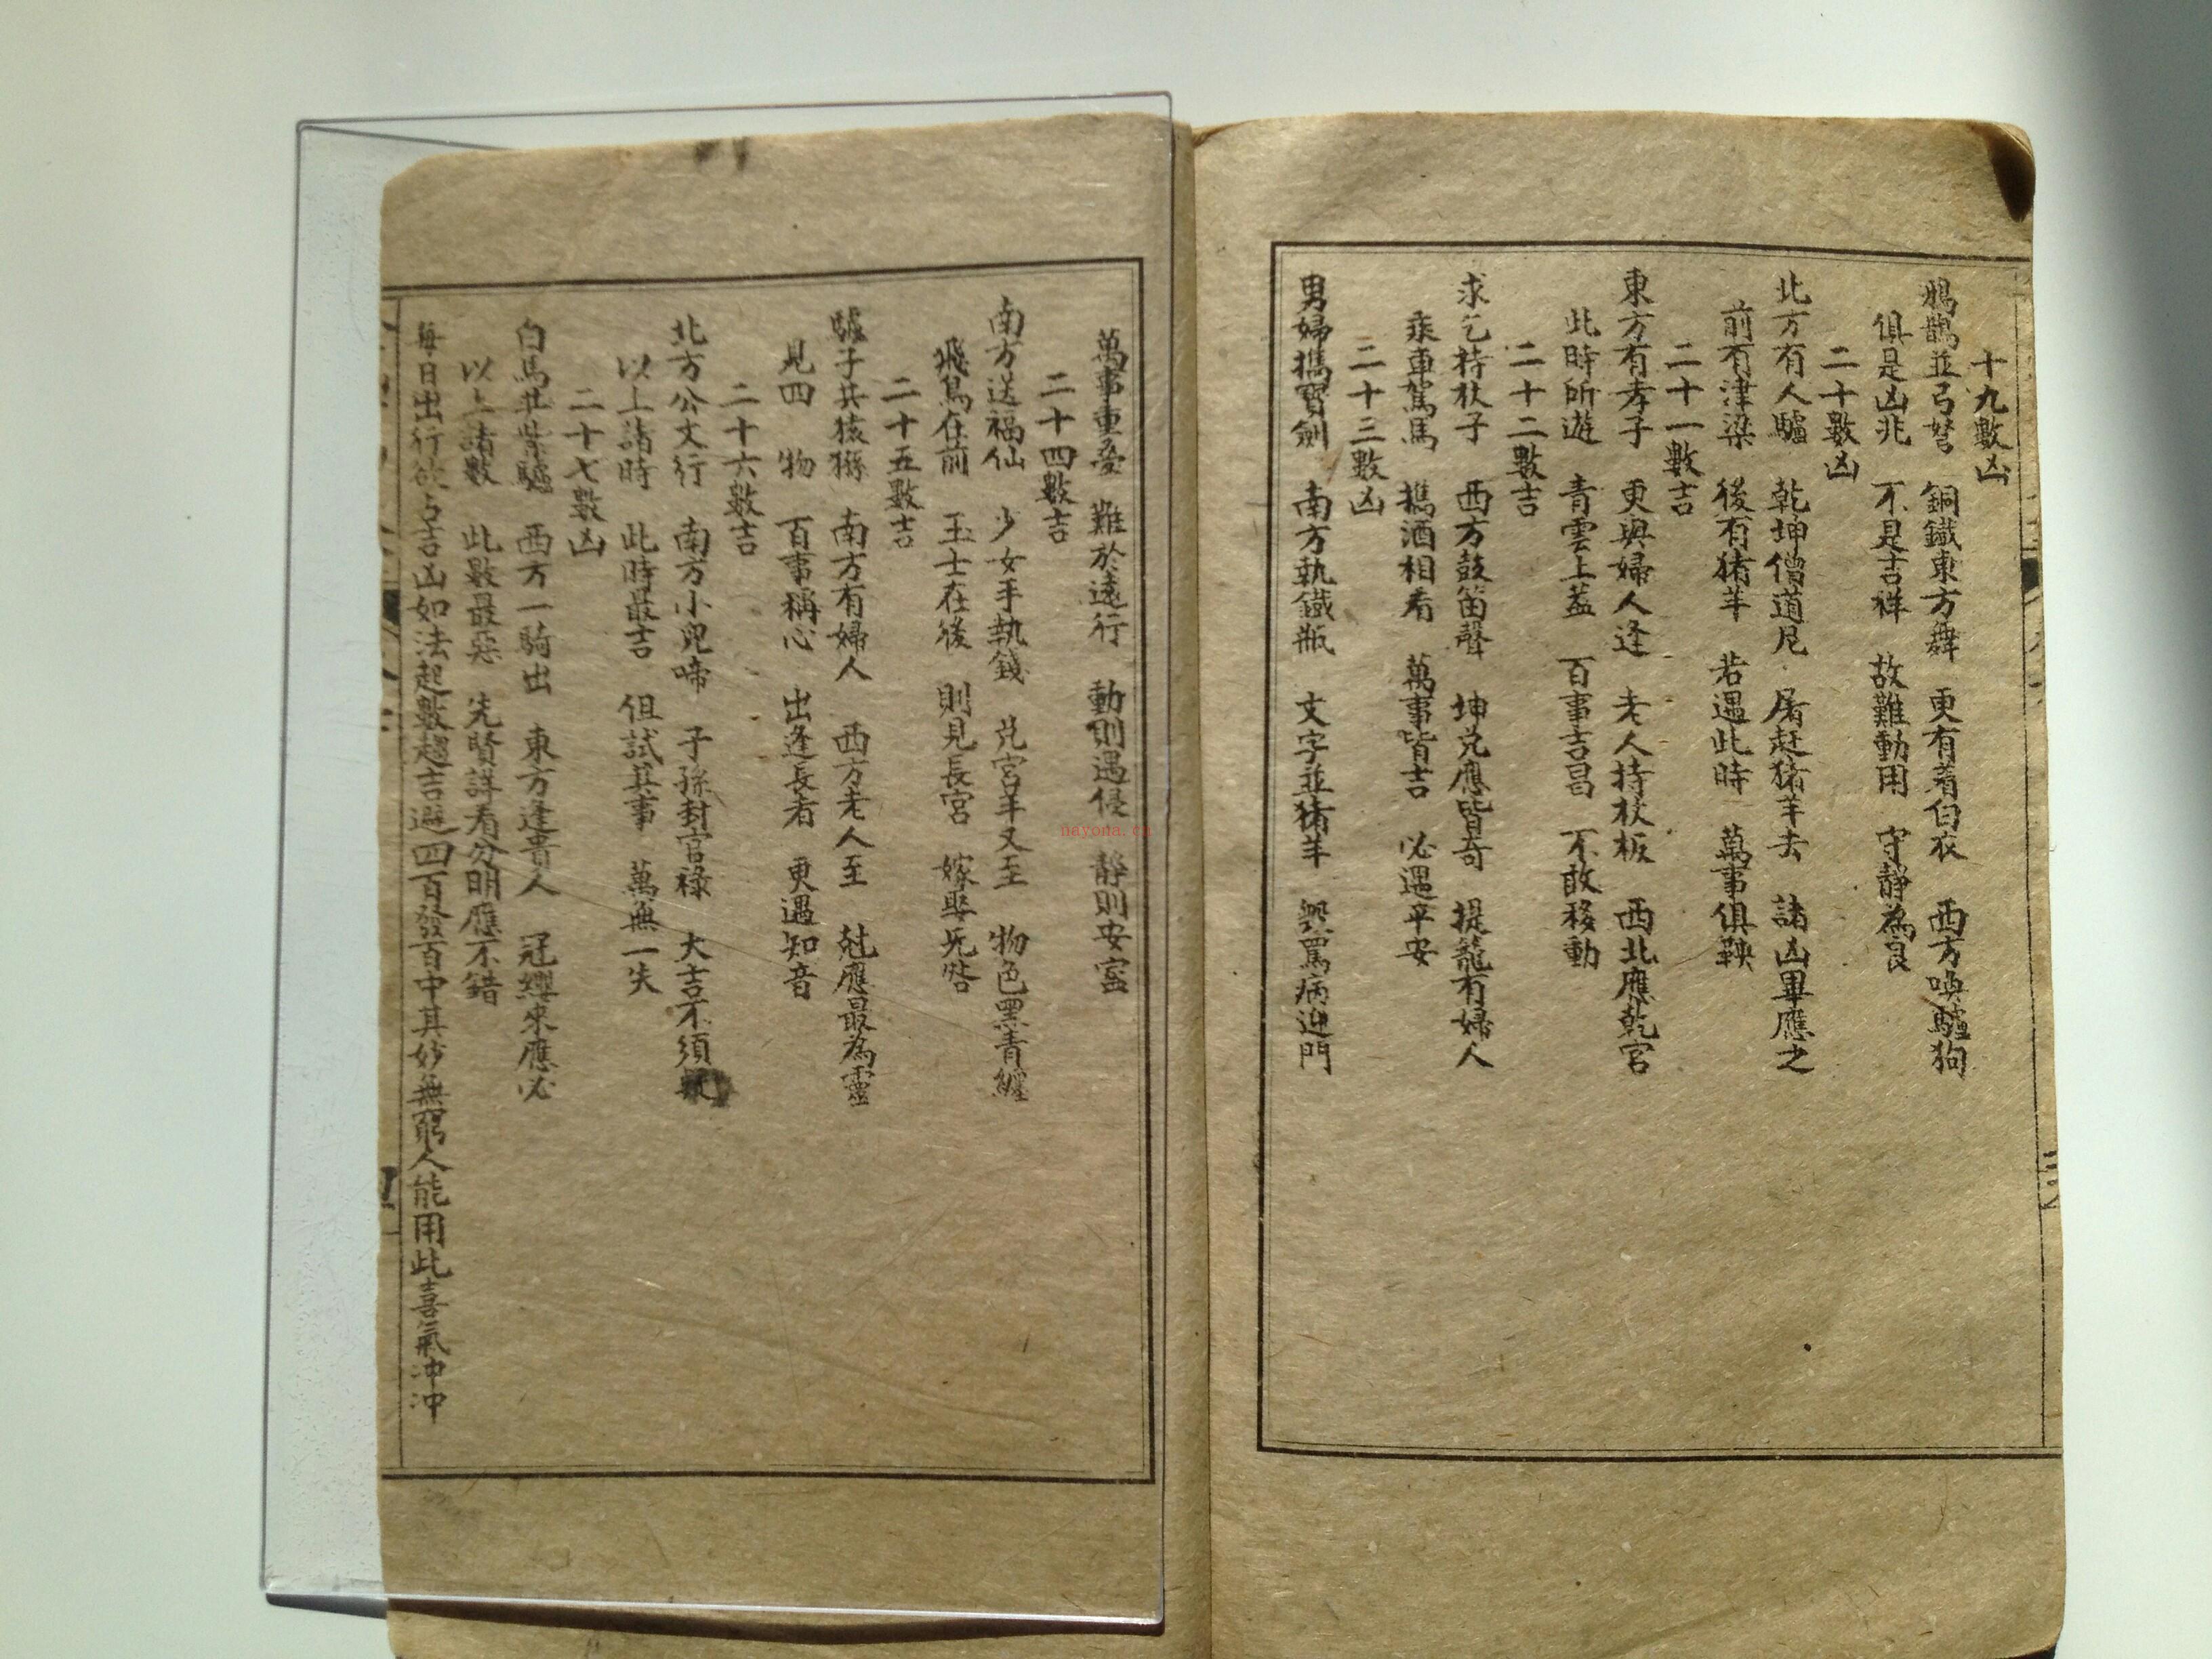 十九數凶
鴉鵲並弓弩 銅鐵東方舞 更有着白衣 西方喚驢狗
俱是凶兆 不是吉祥 故難動用 守靜為良
二十數凶
北方有人驢 乾坤僧道尼 屠赶猪羊去 諸凶畢應之
前有津梁 後有猪羊 若遇此時 萬事俱
二十一數吉
東方有孝子 更與婦人逢 老人持杖板 西北應乾宮
此時所遊 青雲上蓋 百事吉昌 不敢移動
二十二數吉
求乞持杖子 西方鼓笛聲 坤兌應皆奇 提籠有婦人
乘車駕馬 擕酒相看 萬事皆吉 必遇平安
二十三數凶
男婦擕寶劍 南方執鐵瓶 文字並猪羊 罵病迎門
萬事重憂 難於遠行 動則遇侵 靜則安寍
二十四數吉
南方送福仙 少女手執錢 兌宮羊又至 物色黑青纏
飛鳥在前 玉士在後 則見長宮 嫁娶旡咎
二十五數吉
驢子共猿猴 南方有婦人 西方老人至 尅應最為靈
見四物 百事稱心 出逢長者 更遇知音
二十六數吉
北方公文行 南方小兒啼 子孫封官祿 大吉不須
以上諸時 此時最吉 但試其事 萬無一失
二十七數凶
白馬北紫驢 西方一騎出 東方逢貴人 冠纓來應必
以上諸數 此數最惡 先賢詳看分明應不錯
每日出行欲占吉凶如法起數趨吉避凶百發百中其妙無窮人能用此喜氣沖沖
nayona.cn